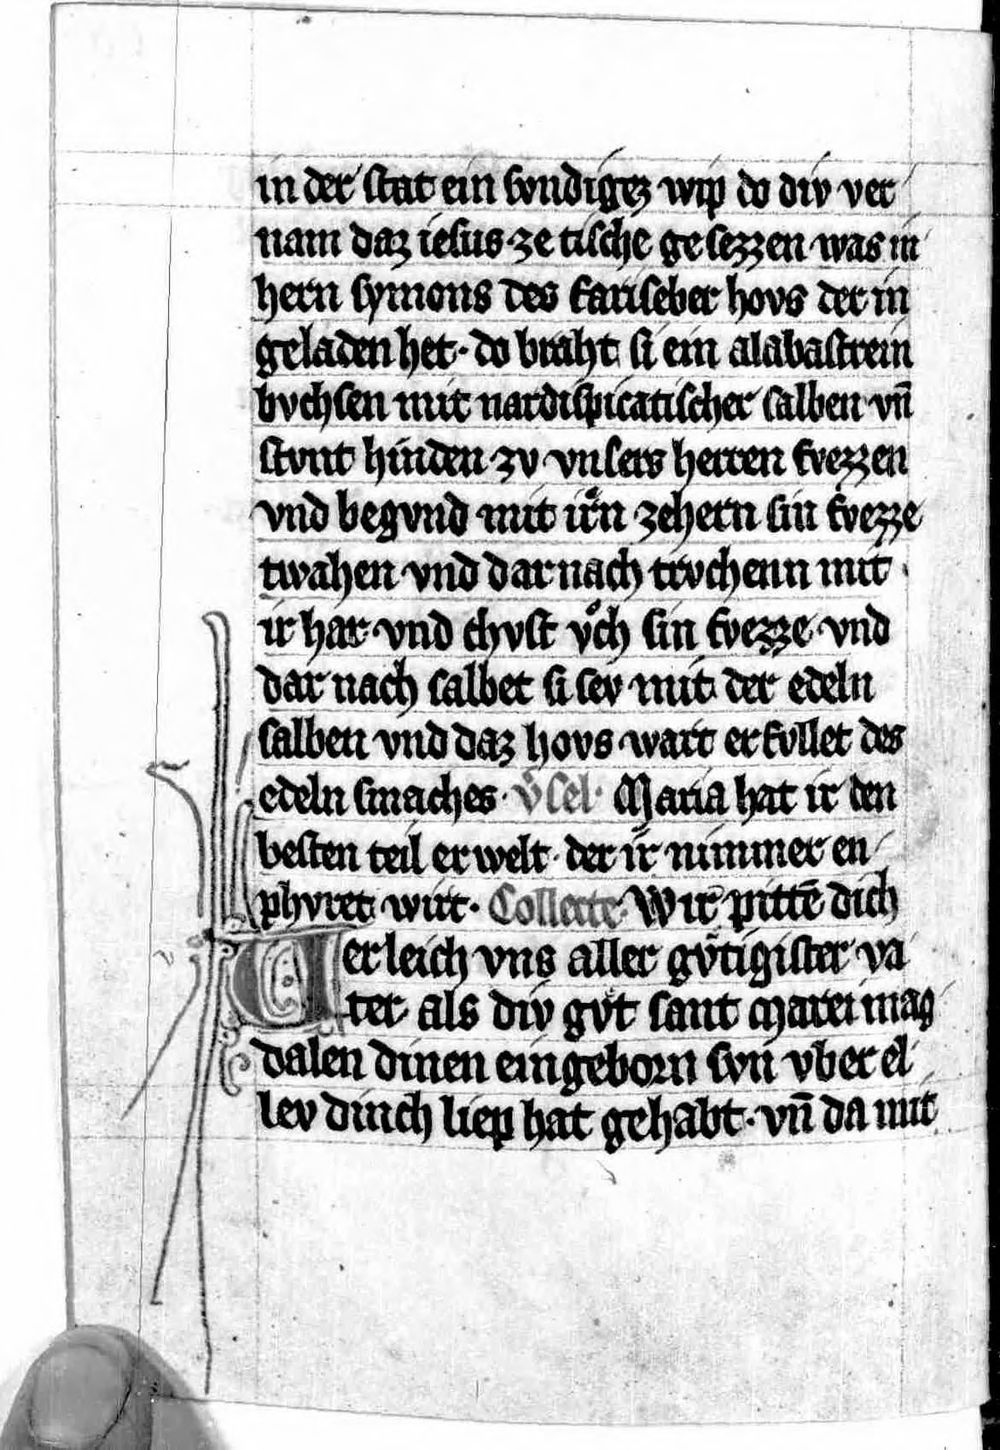 in der stat ein svndigez wip do div ver
nam daz iesus ze tische gesezzen was in
hern symons des fariseber hovs der in
geladen het· do braht si ein alabastrein
bvchsen mit nardispicatischer salben vn̄
stvnt hinden zv vnsers herren fvezzen
vnd begvnd mit irn zehern sin fvezze
twahen vnd dar nach trvchenn mit
ir har vnd chvst vͦch sin fvezze vnd
dar nach salbet si sev mit der edeln
salben vnd daz hovs wart erfvllet des
edeln smaches· v̄sel· Maria hat ir den
besten teil erwelt· der ir nimmer en
phvret wirt· Collecte Wir pittē dich
Verleich vns aller gvtigister va
ter als div gvt sant Marei mag
dalen dinen eingeborn svn vber el
lev dinch liep hat gehabt· vn̄ da mit